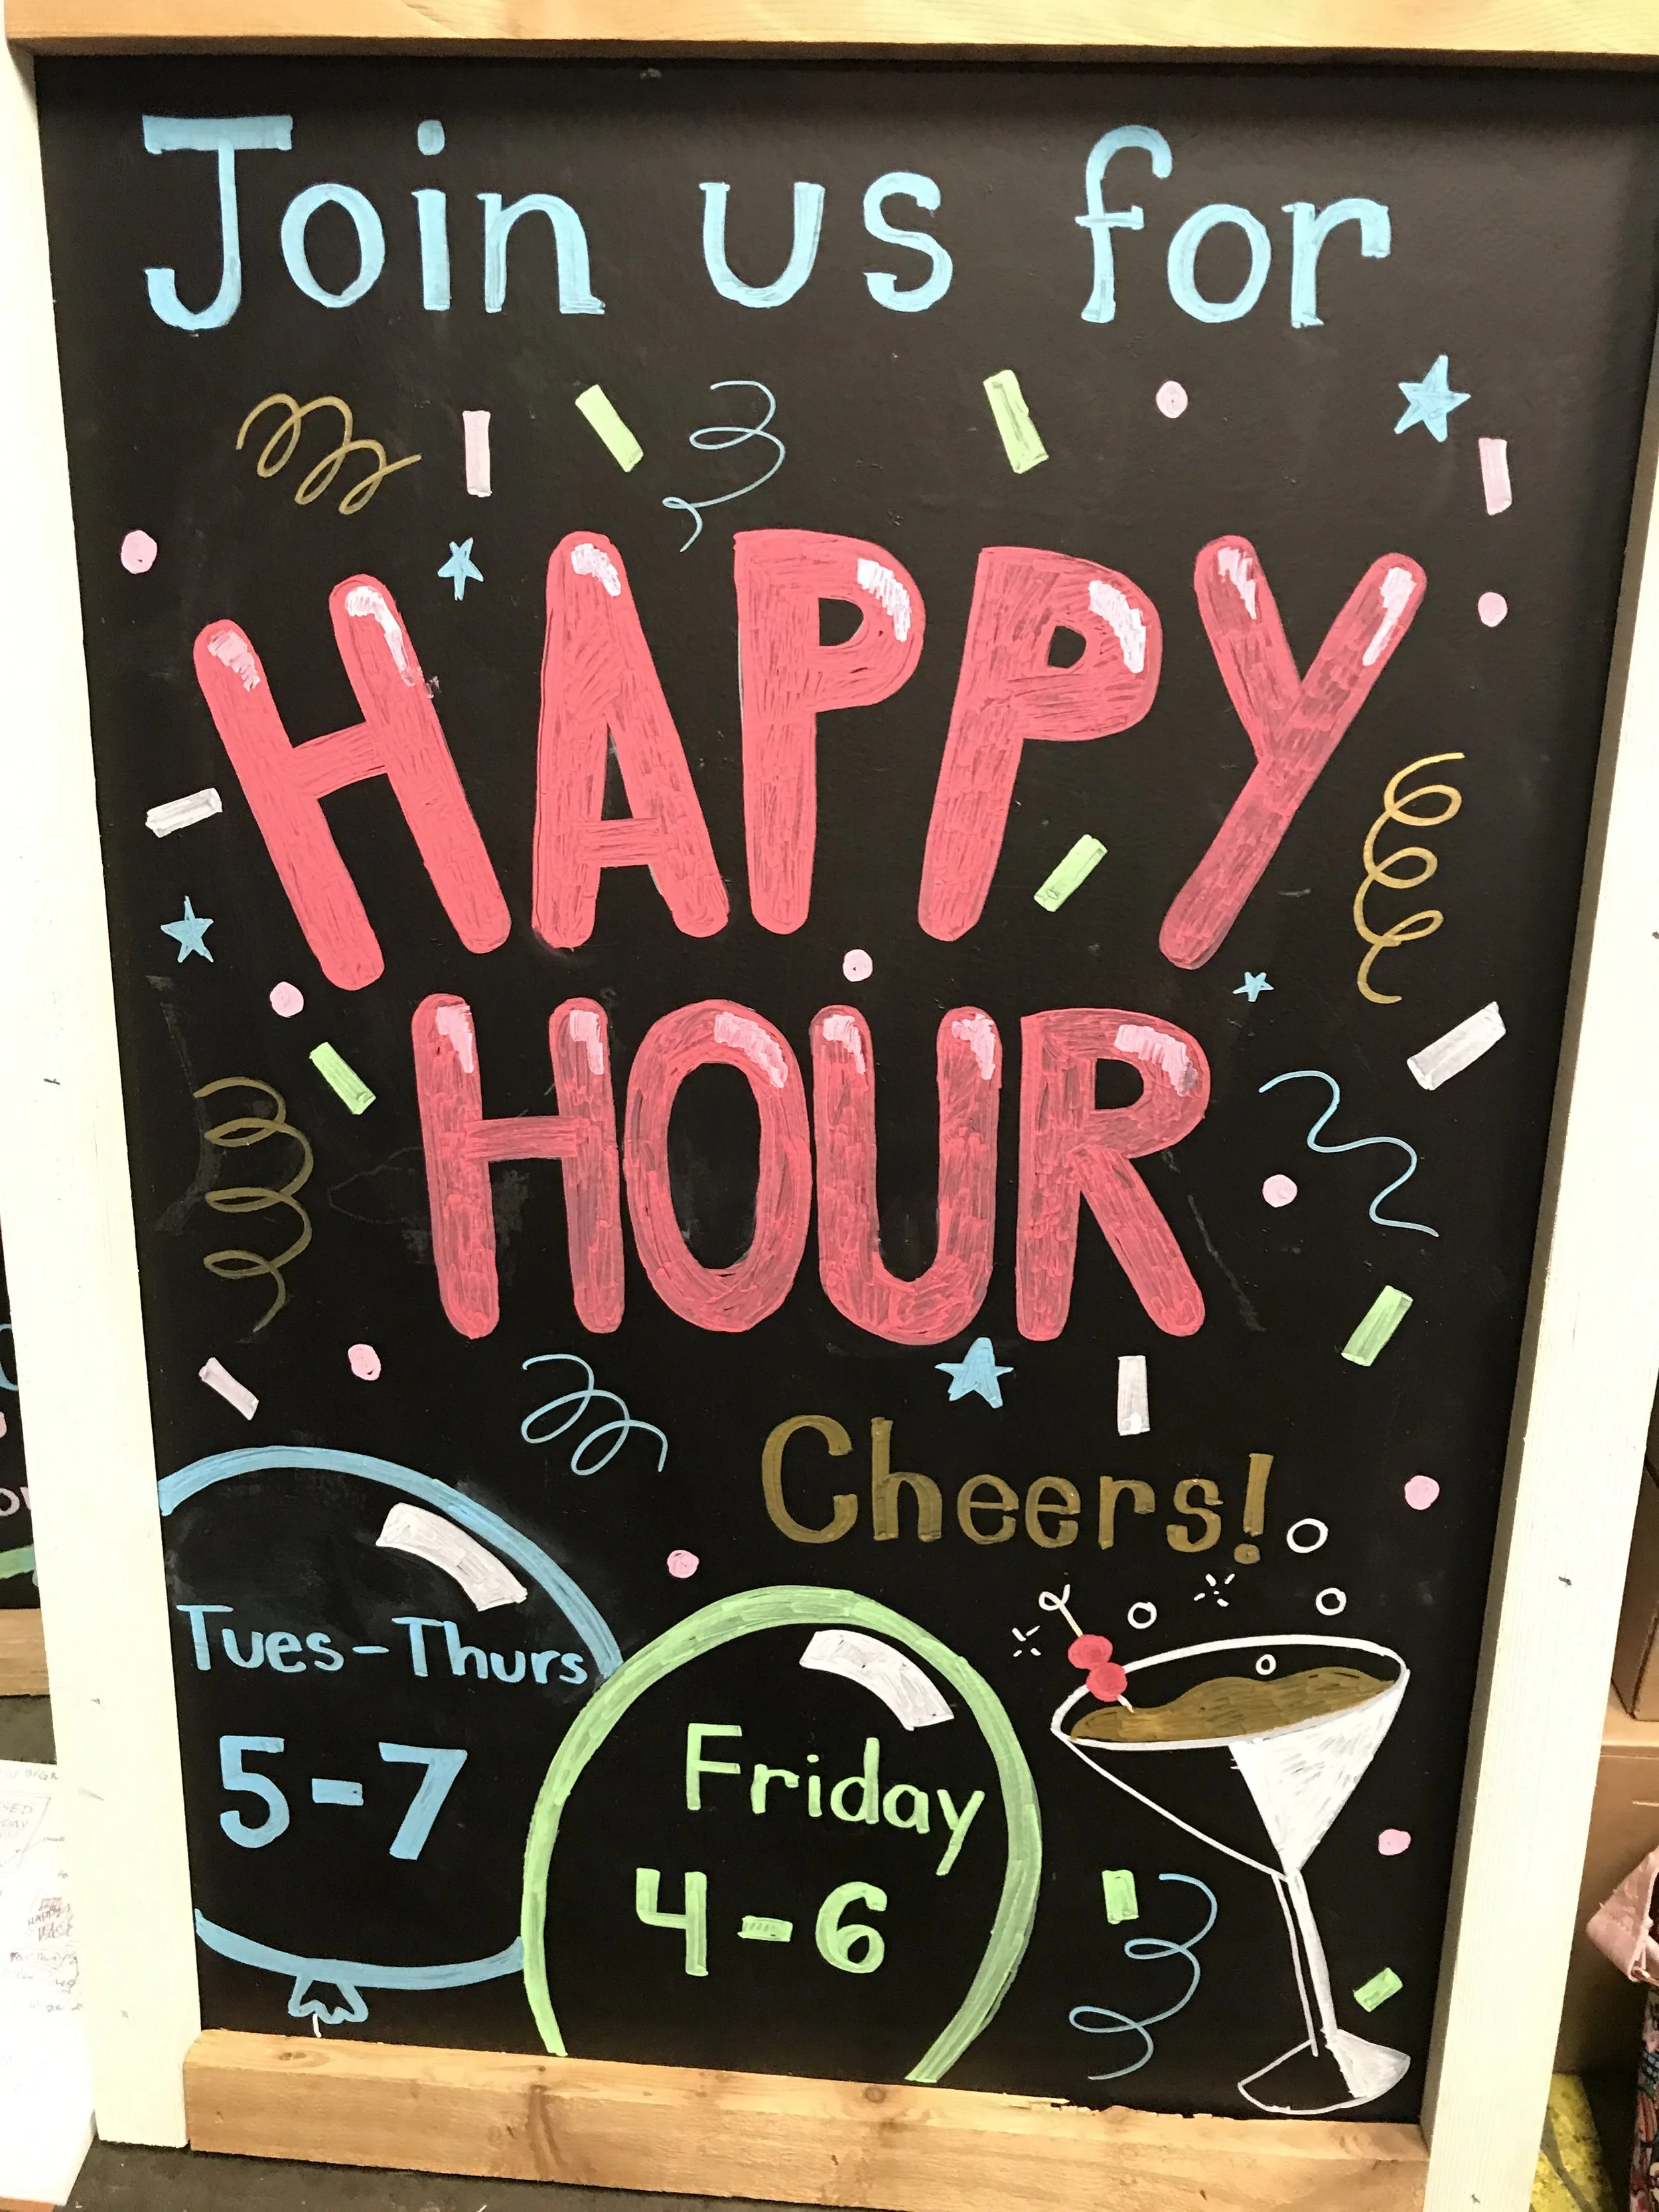 Join us for
HAPPY
HOUR
Cheers!
Tues-Thurs
5-7
Friday
4-6